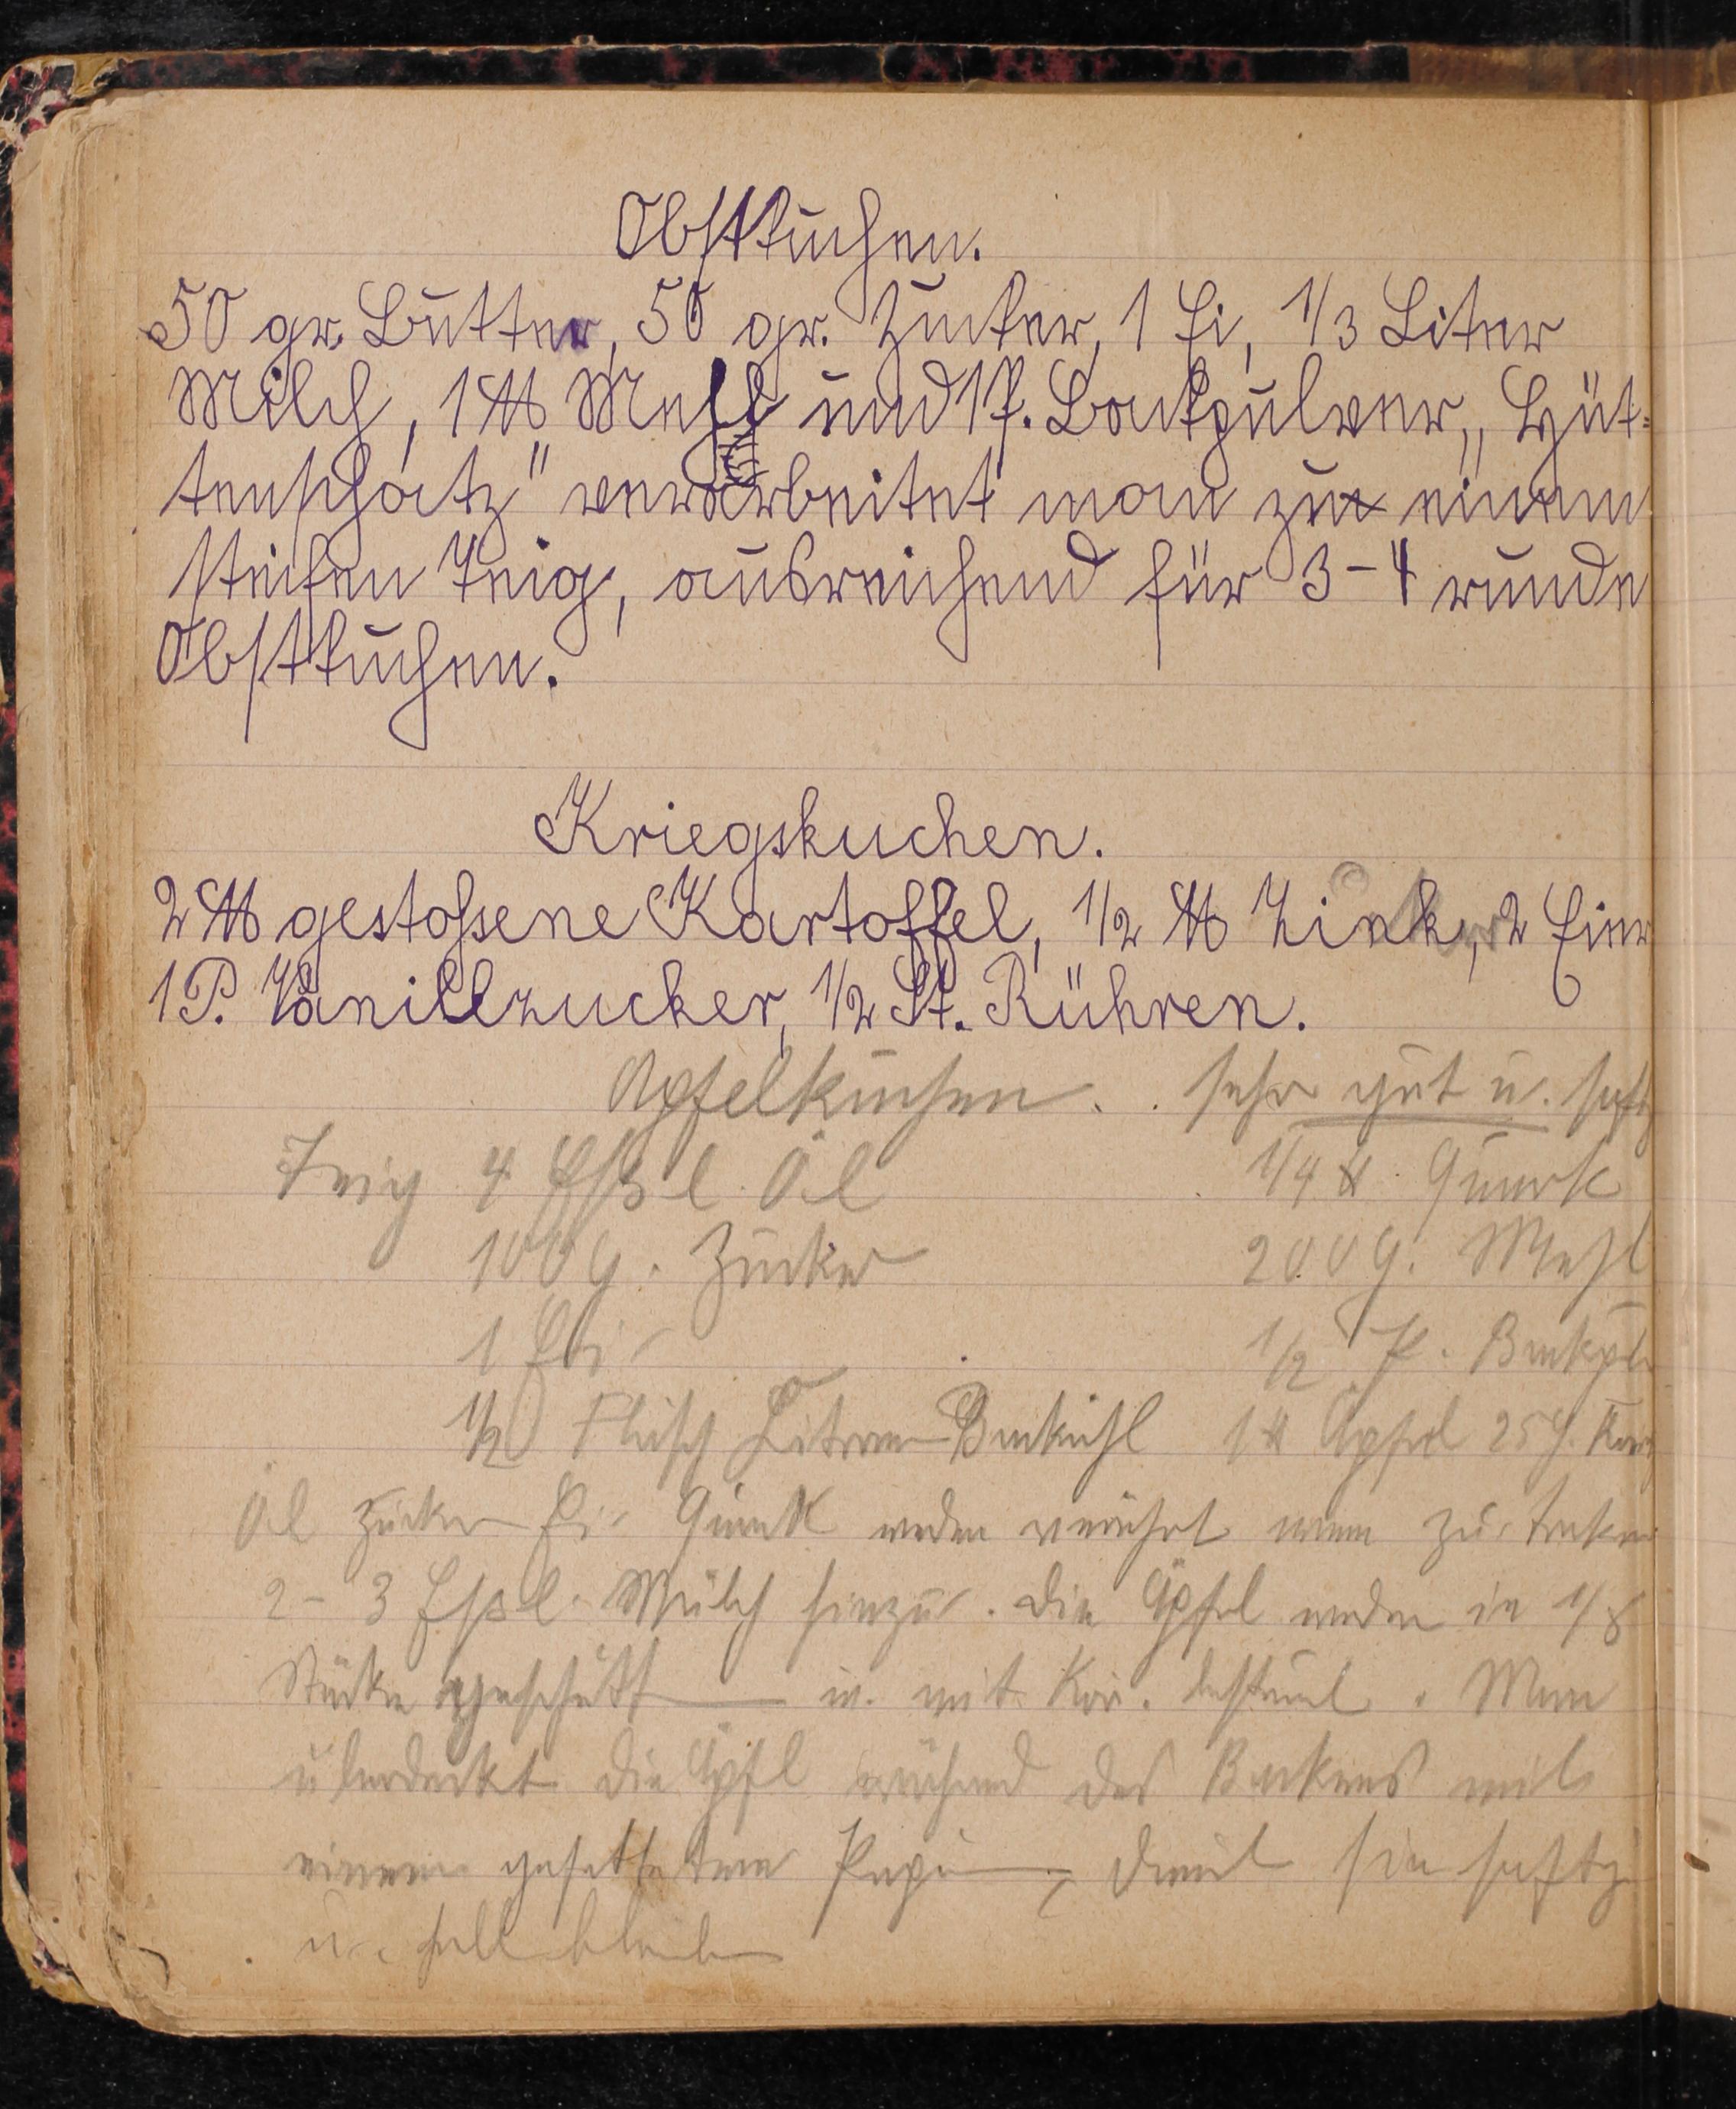 Obstkuchen.
50 gr. Butter, 50 gr. Zucker, 1 Ei, 1/3 Liter
Milch, 1 ℔ Mehl und 1 P. Backpulver „Hüt=
tenschatz" verarbeitet man zu einem
steifen Teig, ausreichend für 3-4 runde
Obstkuchen.
Kriegskuchen.
2 ℔ gestoßene Kartoffel, 1/2 ℔ Zink, 2 Eier
1 P. Vanillzucker, 1/2 St. Rühren.
Apfelkuchen. sehr gut u.
Teig 4 Eßl Öl 1/4 ℔ Quark
100 g. Zucker 200 g. Mehl
1 Ei 1/2 P.
1/2 Fläsch Zitronen Backöhl 1 ℔ Äpfel 25 g.
Öl Zucker Ei Quark werden verrührt wenn zu trocken
2-3 Eßl. Milch hinzu. Die Äpfel werden in 1/8
Stücke u. mit Kor. bestreut. Man
überdeckt die Äpfel während des Backens mit
einem gefetteten Papier, damit sie saftig
u. hell bleiben